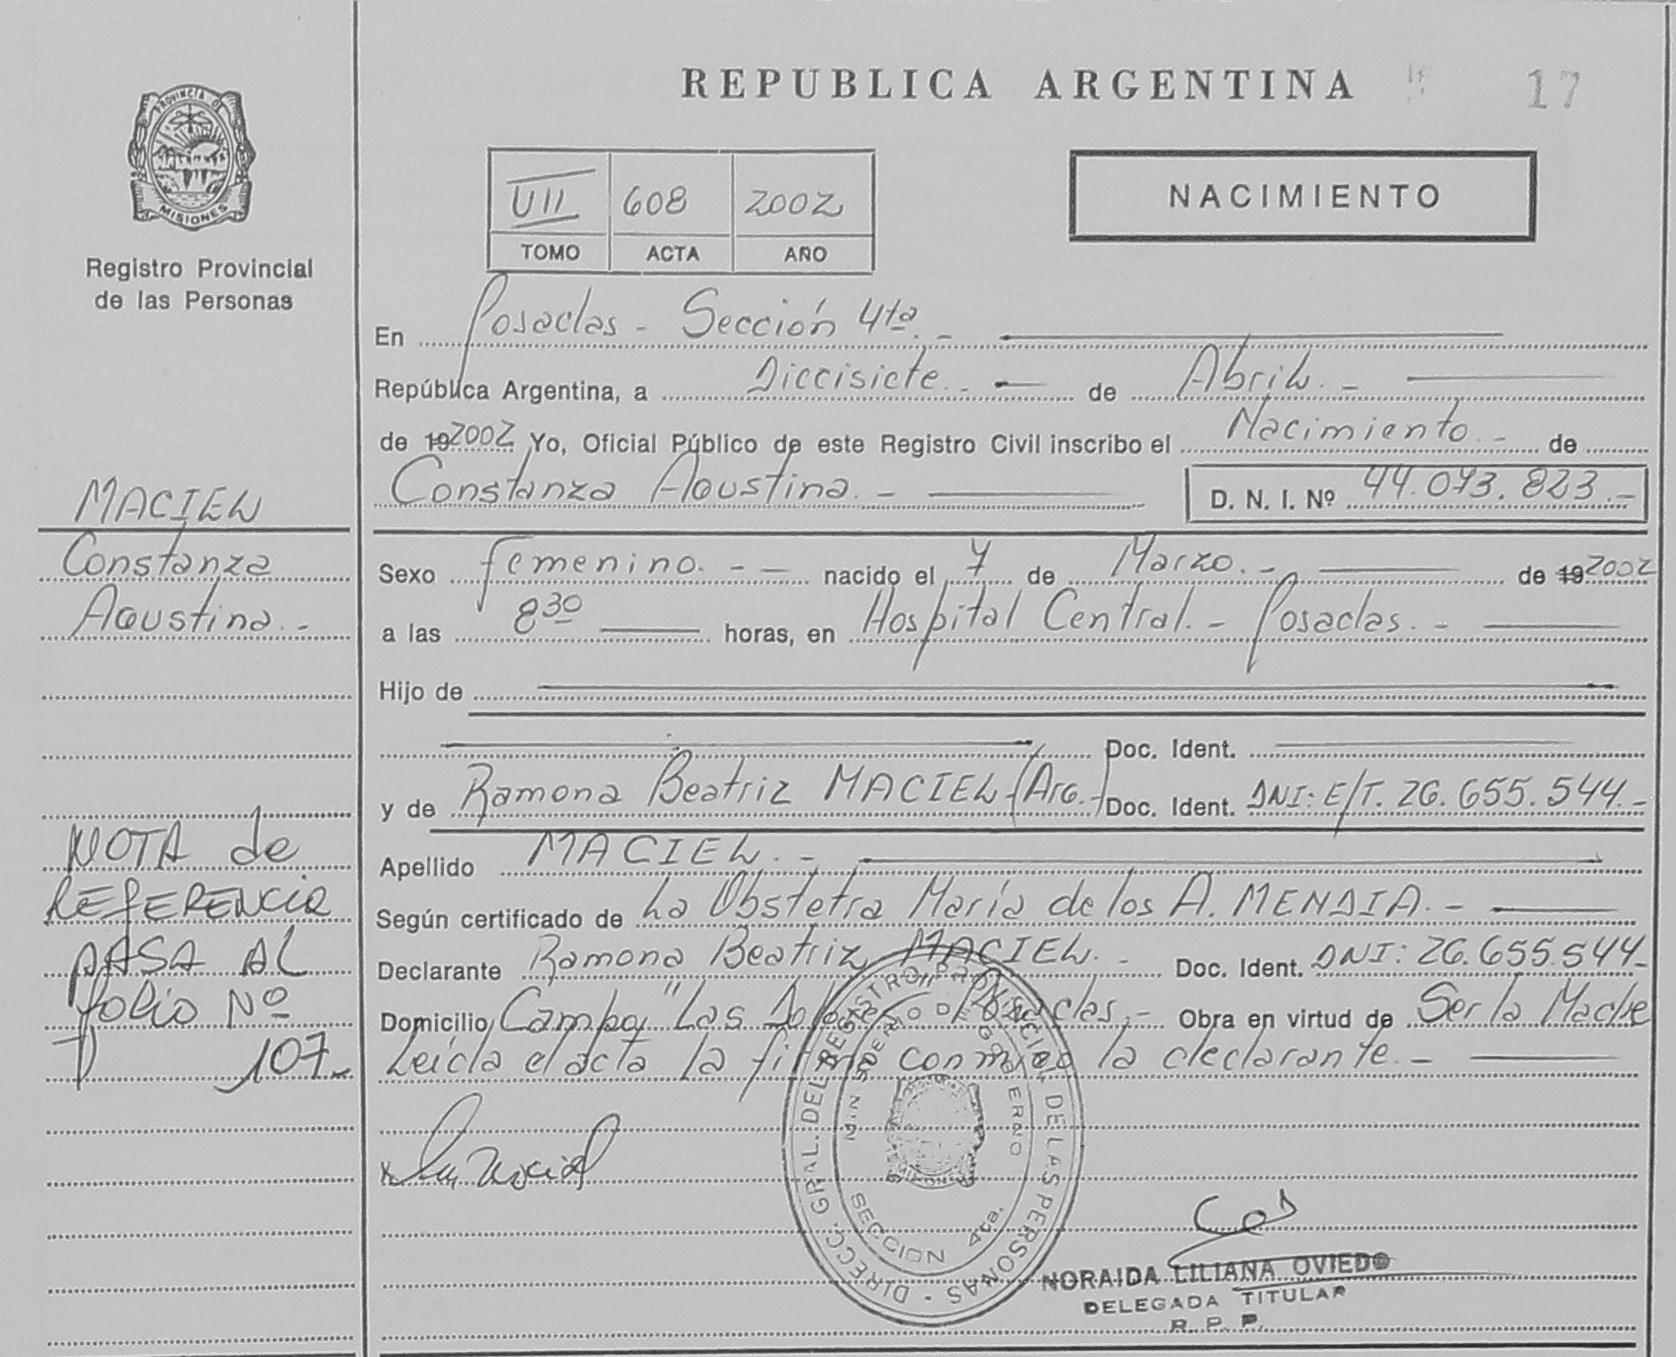 REPUBLICA ARGENTINA
17
PROVINCIA D
MISIONES
Registro Provincial
de las Personas
VII 608 2002
TOMO ACTA AÑO
NACIMIENTO
En Posadas - Sección 4ta. -
República Argentina, a Diecisiete. - de Abril. -
de 19 2002 Yo, Oficial Público de este Registro Civil inscribo el Nacimiento. - de
Constanza Agustina. - D. N. I. Nº 44.073.823.-
Sexo femenino. - - nacido el 7 de Marzo. - de 19 2002
a las 8 30 horas, en Hospital Central. - Posadas. -
Hijo de
Doc. Ident.
y de Ramona Beatriz MACIEL-(Arg.-) Doc. Ident. DNI: E/T. 26.655.544.-
Apellido MACIEL. -
Según certificado de La Obstetra María de los A. MENDIA. -
Declarante Ramona Beatriz MACIEL. - Doc. Ident. DNI: 26.655.544-
Domicilio Campo "Las Dolores" Posadas.- Obra en virtud de Ser la Madre
Leída el acta la firma conmigo la declarante. -
MACIEL
Constanza
Agustina. -
NOTA de
REFERENCIA
PASA AL
folio Nº
107.-
DIRECC. GRAL. DEL REGISTRO PROVINCIAL DE LAS PERSONAS -
MINISTERIO DE GOBIERNO
MISIONES
SECCION 4ta.
NORAIDA LILIANA OVIEDO
DELEGADA TITULAR
R. P. P.